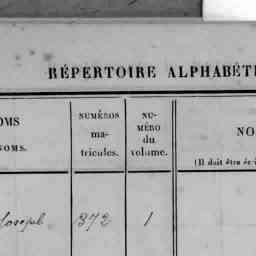 RÉPERTOIRE ALPHABÉT
OMS
NOMS.
NUMÉROS
ma-
tricules.
NU-
MÉRO
du
volume.
NO
(Il doit être écri
Joseph
372
1